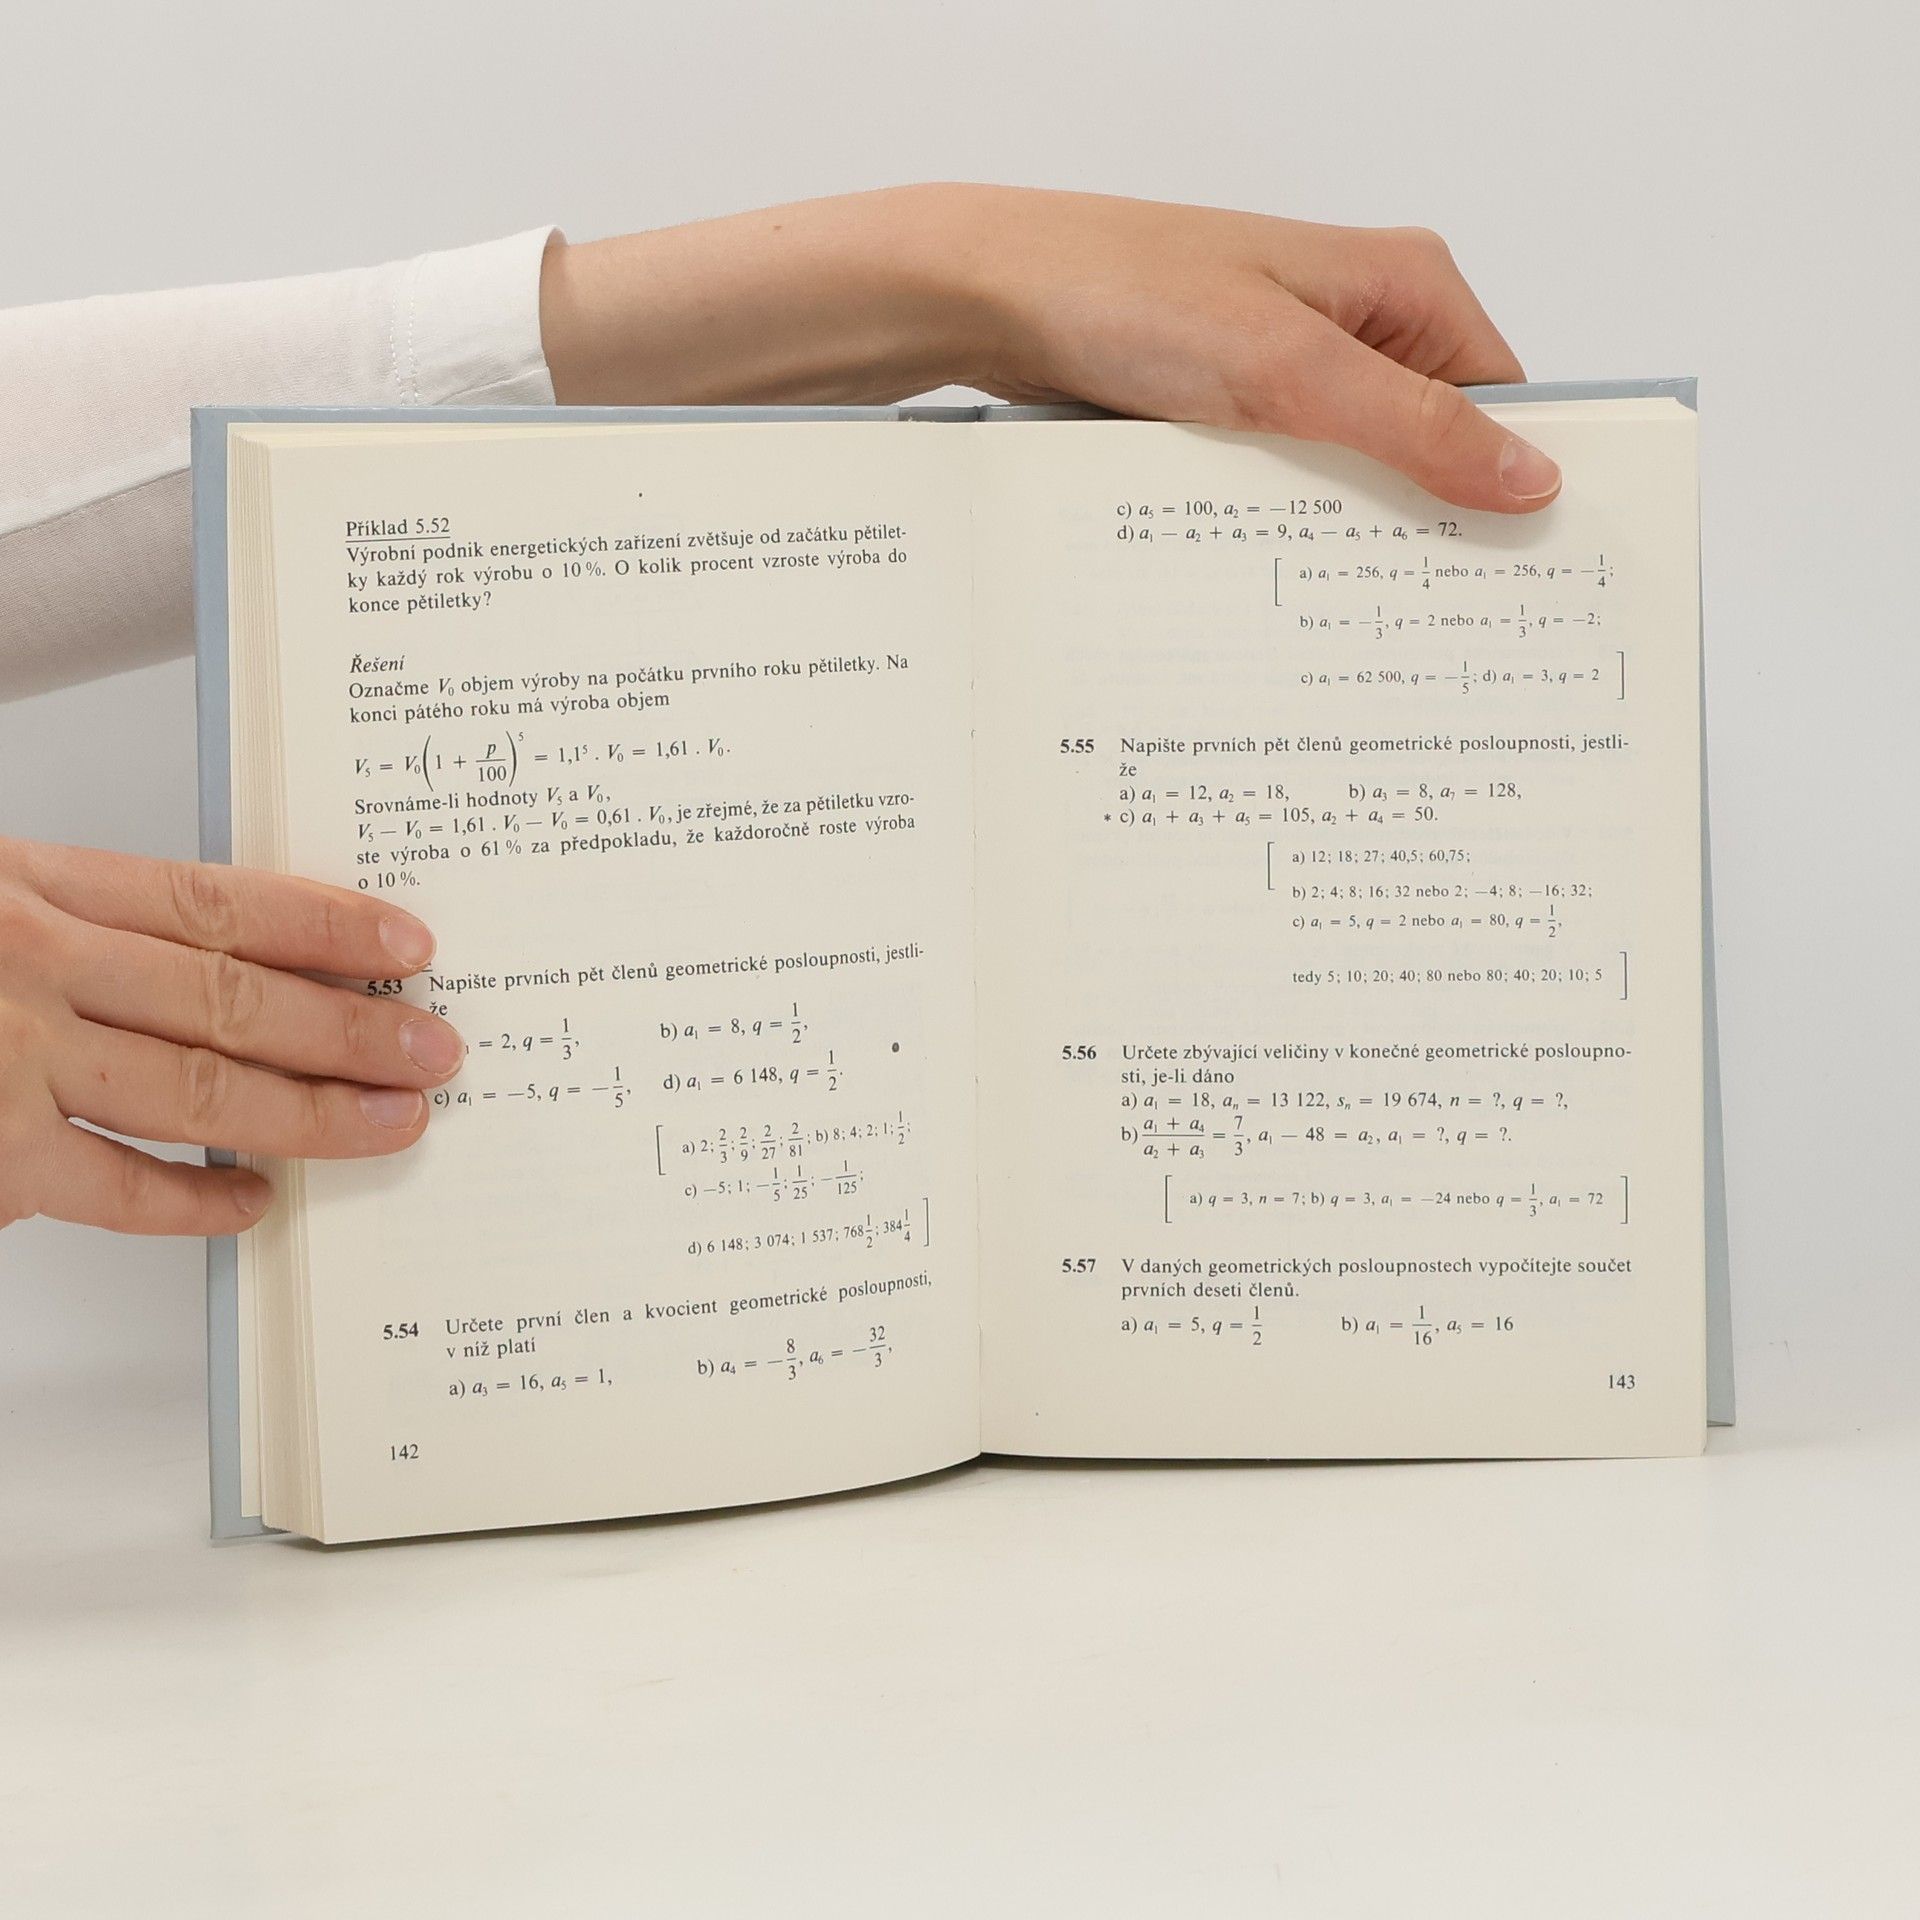 Příklad 5.52
Výrobní podnik energetických zařízení zvětšuje od začátku pětilet-
ky každý rok výrobu o 10 %. O kolik procent vzroste výroba do
konce pětiletky?
Řešení
Označme V₀ objem výroby na počátku prvního roku pětiletky. Na
konci pátého roku má výroba objem
V₅ = V₀(1 + p/100)⁵ = 1,1⁵ . V₀ = 1,61 . V₀.
Srovnáme-li hodnoty V₅ a V₀,
V₅ — V₀ = 1,61 . V₀ — V₀ = 0,61 . V₀, je zřejmé, že za pětiletku vzro-
ste výroba o 61 % za předpokladu, že každoročně roste výroba
o 10 %.
5.53 Napište prvních pět členů geometrické posloupnosti, jestli-
že
= 2, q = 1/3, b) a₁ = 8, q = 1/2,
c) a₁ = —5, q = —1/5, d) a₁ = 6 148, q = 1/2.
[ a) 2; 2/3; 2/9; 2/27; 2/81; b) 8; 4; 2; 1; 1/2;
c) —5; 1; —1/5; 1/25; —1/125;
d) 6 148; 3 074; 1 537; 768 1/2; 384 1/4 ]
5.54 Určete první člen a kvocient geometrické posloupnosti,
v níž platí
a) a₃ = 16, a₅ = 1, b) a₄ = —8/3, a₆ = —32/3,
142
c) a₅ = 100, a₂ = —12 500
d) a₁ — a₂ + a₃ = 9, a₄ — a₅ + a₆ = 72.
[ a) a₁ = 256, q = 1/4 nebo a₁ = 256, q = —1/4;
b) a₁ = —1/3, q = 2 nebo a₁ = 1/3, q = —2;
c) a₁ = 62 500, q = —1/5; d) a₁ = 3, q = 2 ]
5.55 Napište prvních pět členů geometrické posloupnosti, jestli-
že
a) a₁ = 12, a₂ = 18, b) a₃ = 8, a₇ = 128,
* c) a₁ + a₃ + a₅ = 105, a₂ + a₄ = 50.
[ a) 12; 18; 27; 40,5; 60,75;
b) 2; 4; 8; 16; 32 nebo 2; —4; 8; —16; 32;
c) a₁ = 5, q = 2 nebo a₁ = 80, q = 1/2,
tedy 5; 10; 20; 40; 80 nebo 80; 40; 20; 10; 5 ]
5.56 Určete zbývající veličiny v konečné geometrické posloupno-
sti, je-li dáno
a) a₁ = 18, aₙ = 13 122, sₙ = 19 674, n = ?, q = ?,
b) (a₁ + a₄)/(a₂ + a₃) = 7/3, a₁ — 48 = a₂, a₁ = ?, q = ?.
[ a) q = 3, n = 7; b) q = 3, a₁ = —24 nebo q = 1/3, a₁ = 72 ]
5.57 V daných geometrických posloupnostech vypočítejte součet
prvních deseti členů.
a) a₁ = 5, q = 1/2 b) a₁ = 1/16, a₅ = 16
143